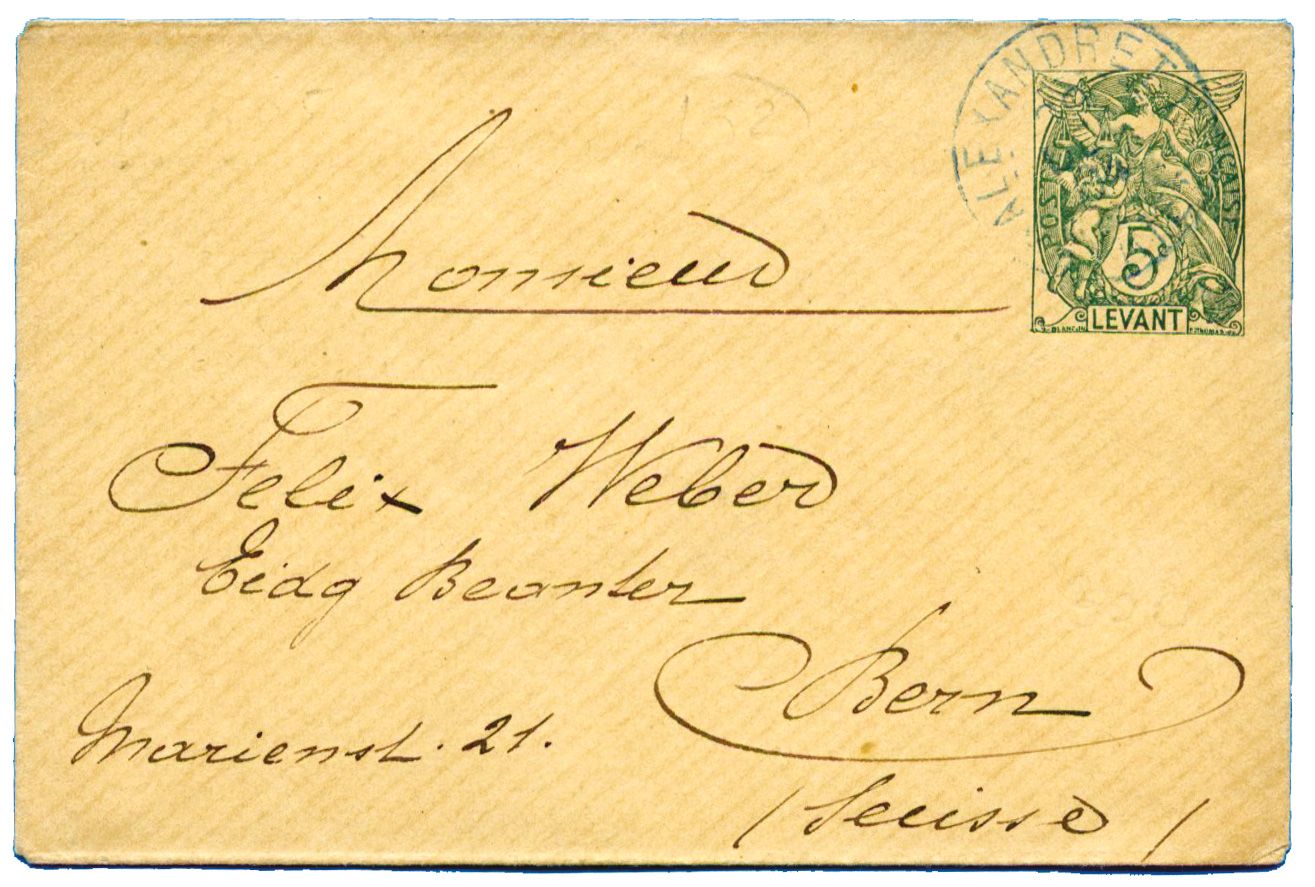 ALEXANDRET
POSTE FRANÇAISE
5
LEVANT
Monsieur
Felix Weber
Eidg Beamter
Bern
Marienst. 21.
(Suisse)